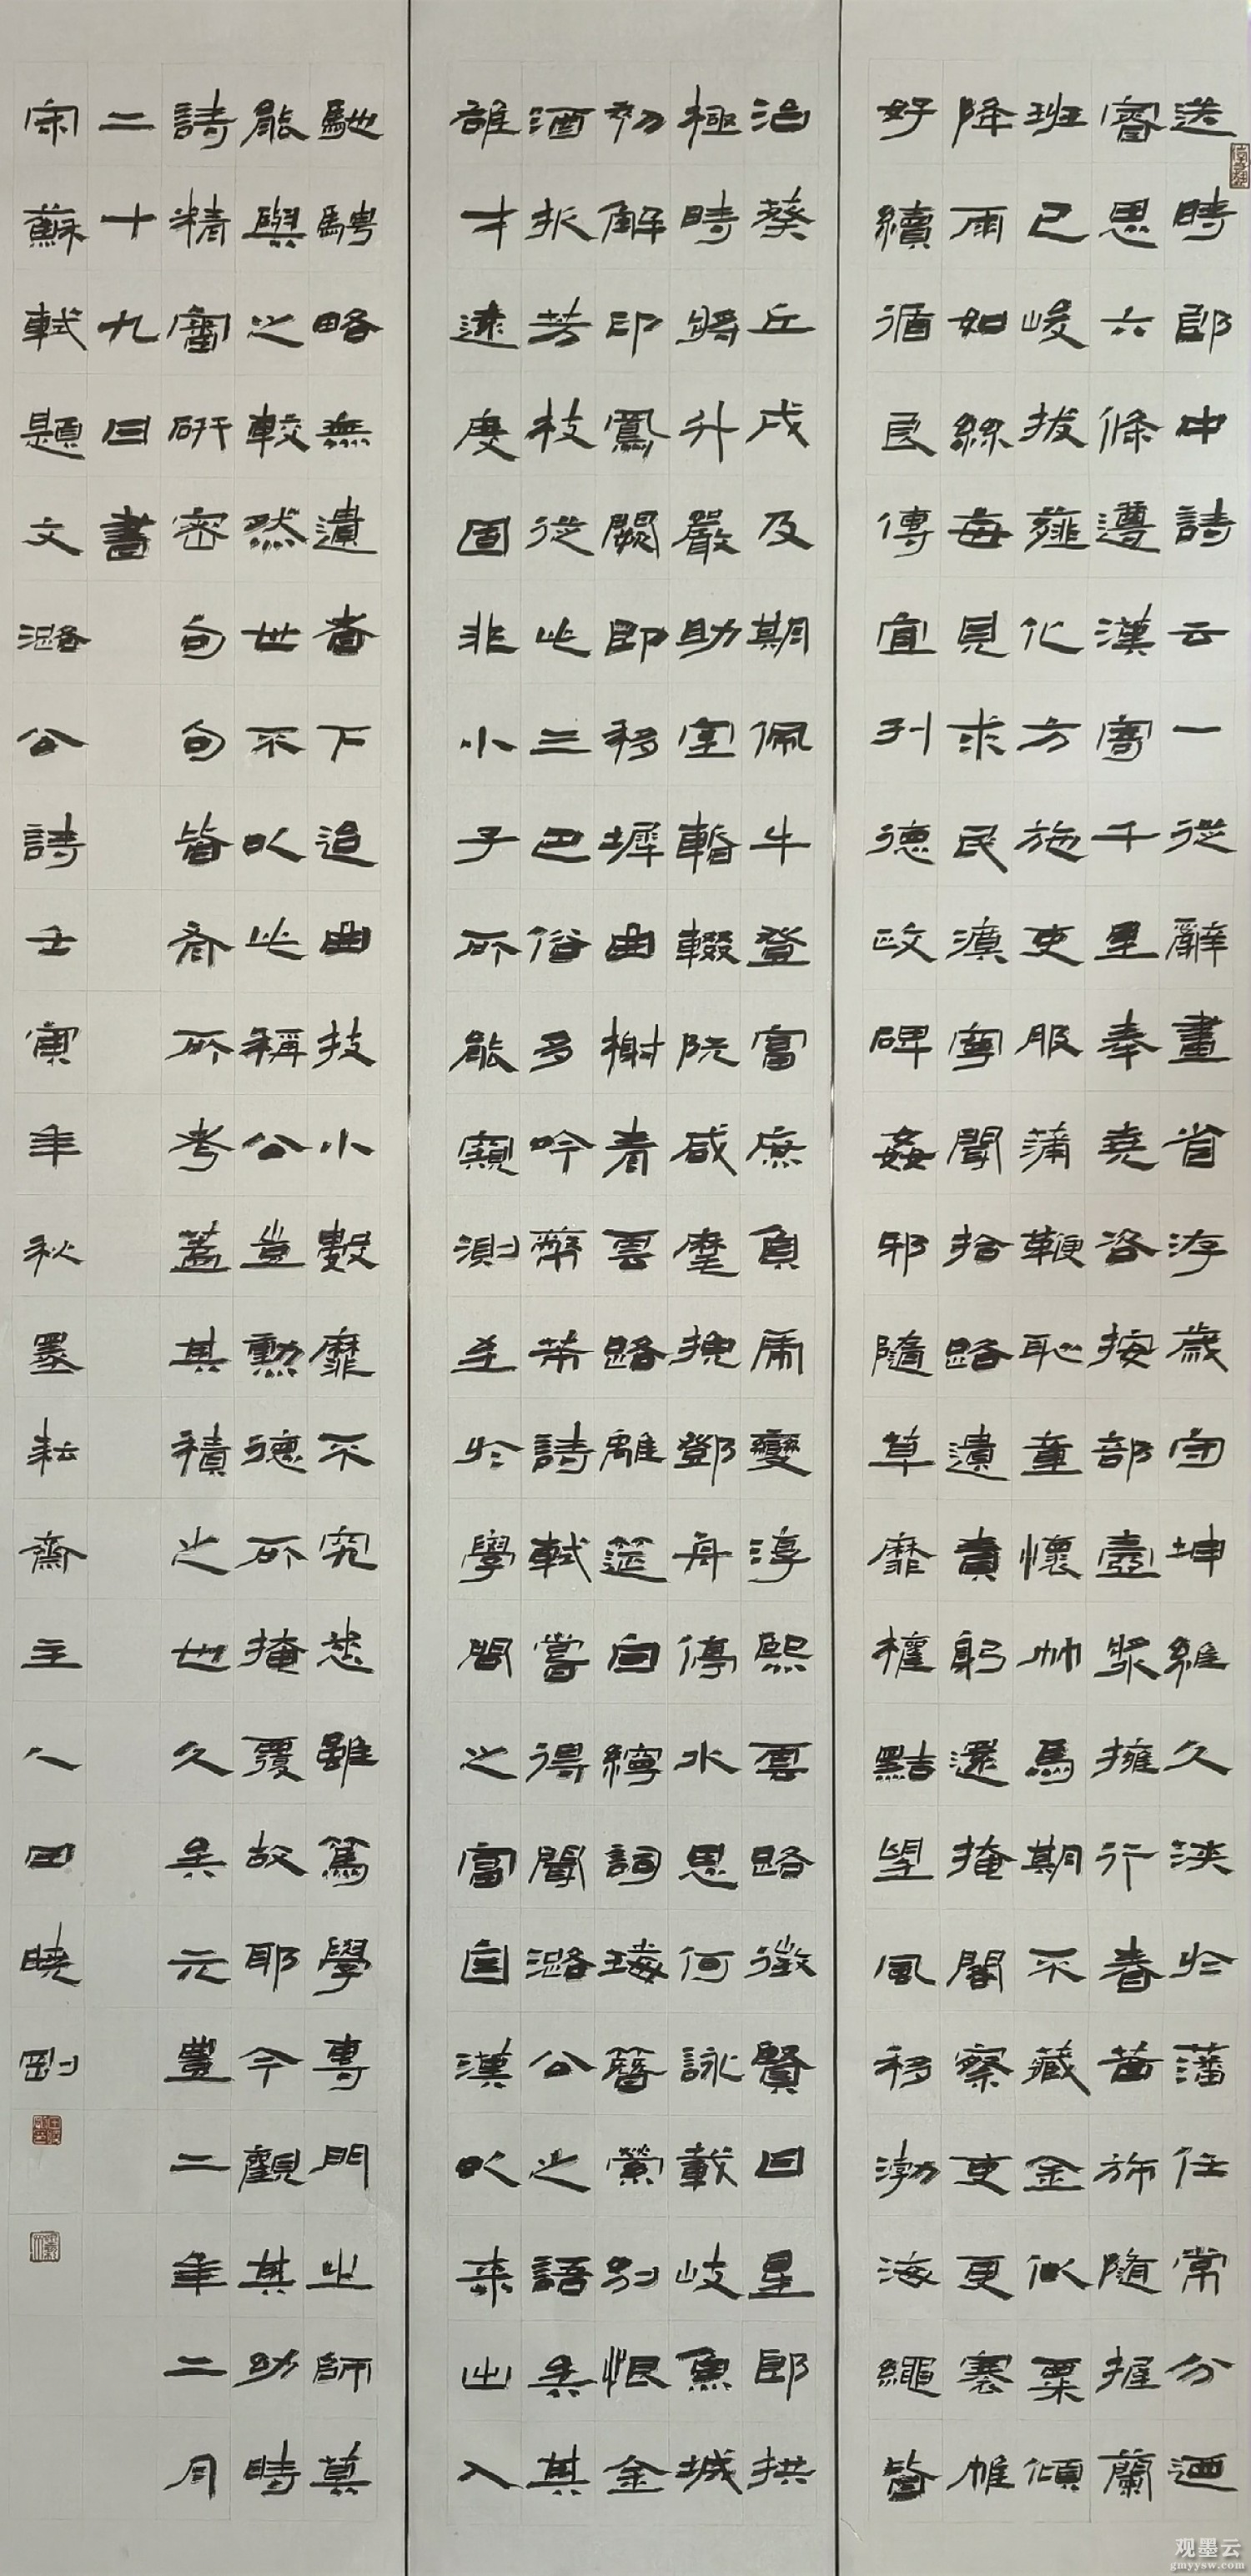 送時郎中詩云一從辭畫省游歲守坤維久浹於藩任常分迺
睿思六條遵漢寄千里奉堯咨按部壺漿擁行春茜旆隨握蘭
班已峻拔薤化方施吏服蒲鞭恥童懷竹馬期不藏金似粟傾
降雨如絲每見求民瘼寧聞拾路遺責躬還掩閤察吏更褰帷
好續循良傳宜刊德政碑姦邪隨草靡權黠望風移渤海繩皆
治葵丘戍及期佩牛登富庶負虎變淳熙雲路徵賢日星郎拱
極時將升嚴助室暫輟阮咸麾挽鄧舟停水思何詠載岐魚城
初解印鳳闕即移墀曲榭看雲路離筵向綍詞瑇簪縈別恨金
酒折芳枝從此三巴俗多吟蔽芾詩軾嘗得聞潞公之語矣其
雄才遠度固非小子所能窺測至於學問之富自漢以來出入
馳騁略無遺者下迨曲技小數靡不究悉雖篤學專門之師莫
能與之較然世不以此稱公豈勳德所掩覆故耶今觀其幼時
詩精審研密句句皆有所考蓋其積之也久矣元豐二年二月
二十九日書
宋蘇軾題文潞公詩壬寅年秋墨耘齋主人田曉剛
观墨云
gmyysw.com